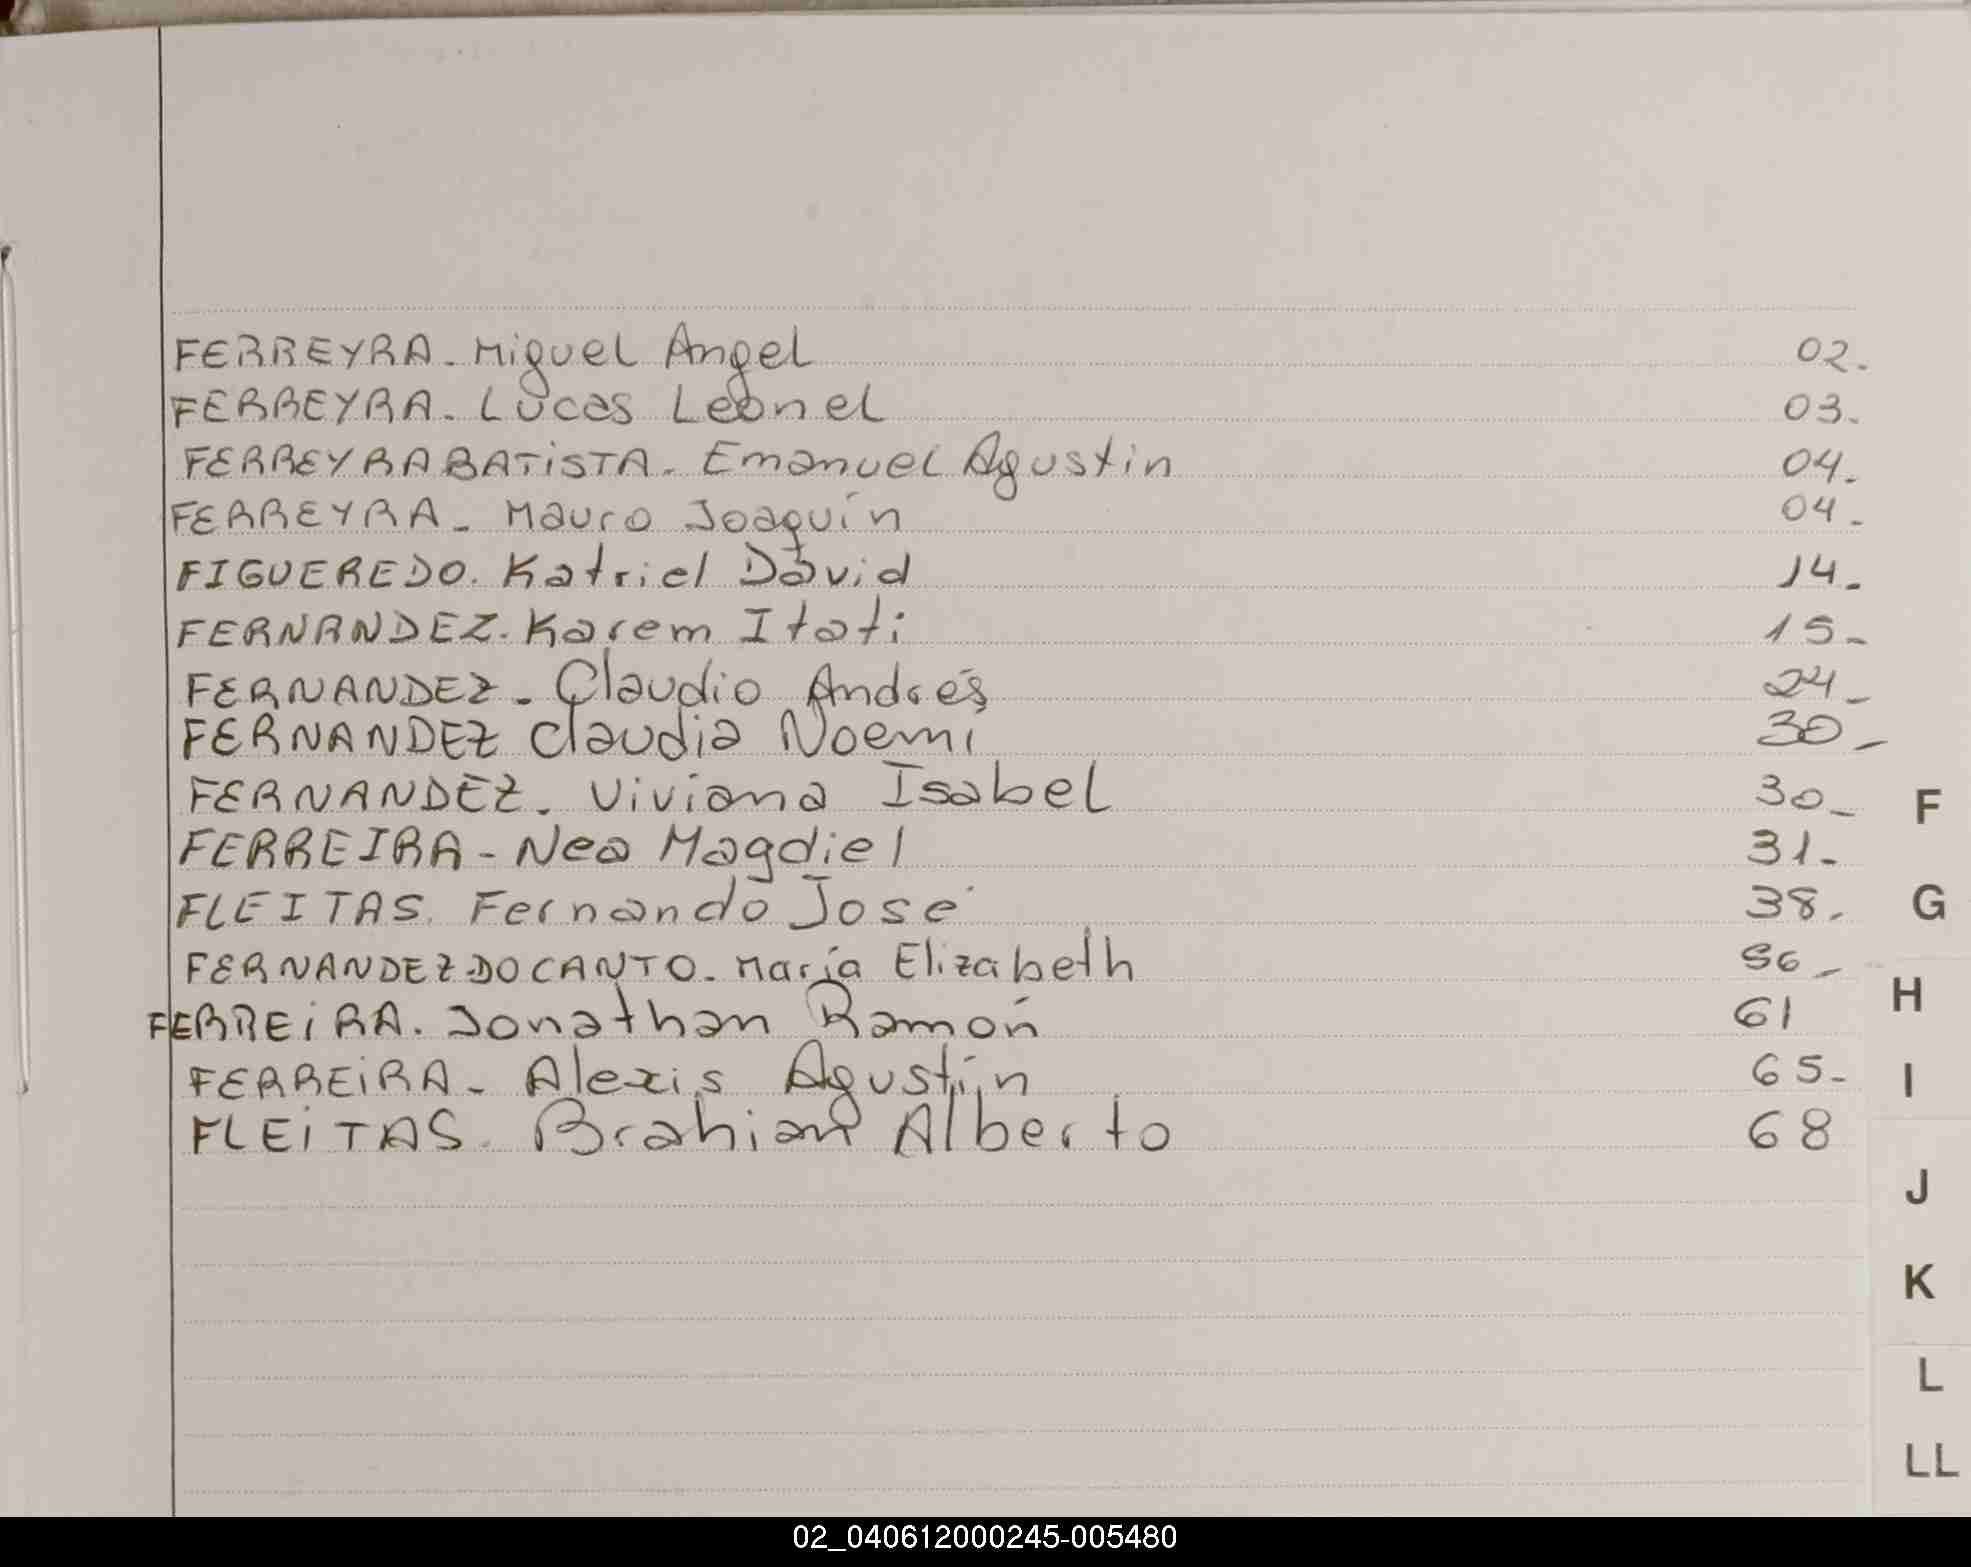 FERREYRA. Miguel Angel 02.
FERREYRA. Lucas Leonel 03.
FERREYRA BATiSTA. Emanuel Agustin 04.
FERREYRA. Mauro Joaquín 04.
FIGUEREDO. Katriel David 14.
FERNANDEZ. Karem Itati 15-
FERNANDEZ. Claudio Andrés 24-
FERNANDEZ Claudia Noemi 30-
FERNANDEZ. Viviana Isabel 30-
FERREIRA - Nea Magdiel 31.
FLEITAS. Fernando José 38.
FERNANDEZ DO CANTO. María Elizabeth 56-
FERREiRA. Jonathan Ramón 61
FERREiRA - Alexis Agustín 65-
FLEiTAS. Brahian Alberto 68
F
G
H
I
J
K
L
LL
02_040612000245-005480